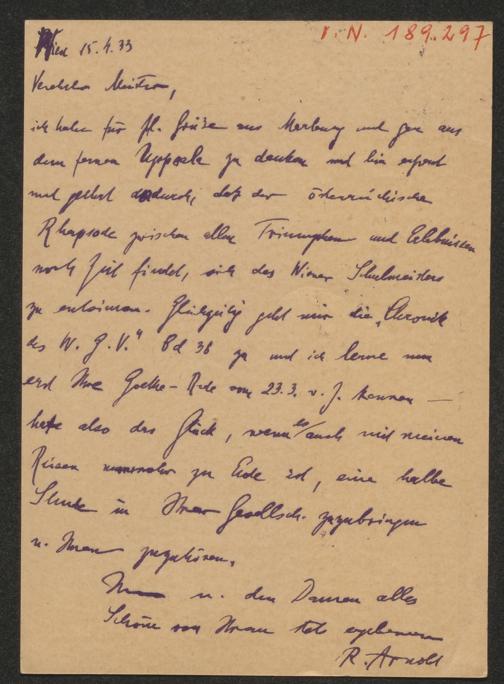 I. N. 189.297
Wien 15.4.33
Verehrter Meister,
ich habe für fl. Grüße aus Marburg und gar aus
dem fernen Uppsala zu danken und bin erfreut
und gerührt dadurch, daß der österreichische
Rhapsode zwischen allen Triumphen und Erlebnissen
noch Zeit findet, sich des Wiener Schulmeisters
zu erinnern. Gleichzeitig geht mir die "Chronik
des W. G. V." Bd 38 zu und ich lerne nun
erst Ihre Goethe-Rede vom 23.3. v. J. kennen —
habe also das Glück, wenn es auch mit meinen
Reisen zu Ende ist, eine halbe
Stunde in Ihrer Gesellsch. zuzubringen
u. Ihnen zuzuhören.
Ihnen u. den Damen alles
Schöne von Ihrem stets ergebenen
R. Arnold